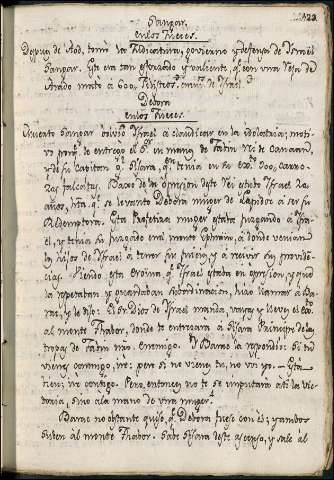 122
Sangar.
en los Jueces.
Despues de Aod, tomó la Judicatura, govierno y defensa de Israel
Sangar. Este era tan esforzado y valiente, q.e con una Reja de
Arado mató a 600, Filisteos, enemig.s de Israel
Debora
en los Jueces.
Muerto Sangar bolvió Israel a claudicar en la idolatria; moti-
vo porq.e le entregó el S.r en man.s de Jabin Rei de Canaan,
y de su Capitan q.e Sisara, q.n tenia en su exto. 900, carro-
zas falcatas. Baxo de la opresion deste Rei estubo Israel 20,
años, hta. q.e se levantó Debora muger de Lapidot a ser su
Redemptora. Esta Profetiza muger estaba juzgando a Isra-
el, y tenia su juzgado en el monte Ephraim, a donde venian
los hijos de Israel a tener sus juicios, y a recivir sus provide-
cias. Siendo esta eroina q.e Israel estaba en opresion, y que
la respetaban y guardaban subordinacion, hizo llamar a Ba-
rac, y le dijo: El Sr. Dios de Israel manda, vayas y lleves el exto.
al monte Thabor, donde te entregará a Sisara Principe de la
tropas de Jabin tuo. enemigo. Y Barac la respondió: Si tu
vienes conmigo, iré; pero si no vienes tu, no voy yo. Está
bien; iré contigo. Pero, entonces, no te se imputara a ti la vic-
toria, sino a la mano de una muger.
Barac no obstante quiso, q.e Debora fuese con él; y ambos
suben al monte Thabor. Sabe Sisara deste ascenso, y sale al